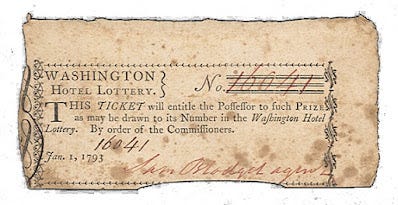 WASHINGTON
HOTEL LOTTERY.
No. 16041
THIS TICKET will entitle the Possessor to such PRIZE
as may be drawn to its Number in the Washington Hotel
Lottery. By order of the Commissioners.
16041
Jan. 1, 1793
Sam Blodget agent